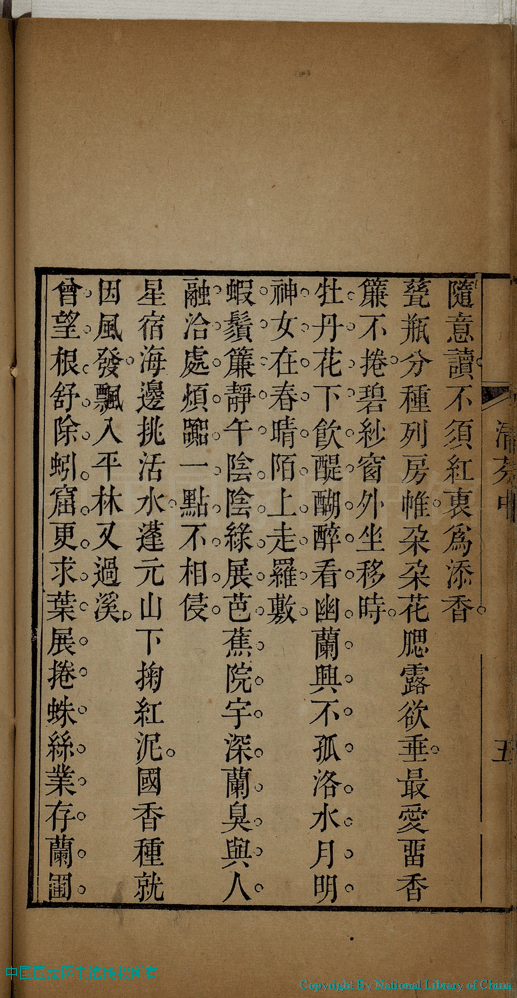 隨意讀不須紅裏爲添香
甆瓶分種列房帷朶朶花腮露欲垂最愛畱香
簾不捲碧紗窗外坐移時
牡丹花下飲醍醐醉看幽蘭興不孤洛水月明
神女在春晴陌上走羅敷
蝦鬚簾靜午陰陰綠展芭蕉院宇深蘭臭與人
融洽處煩囂一點不相侵
星宿海邊挑活水蓬元山下掬紅泥國香種就
因風發飄入平林又過溪
曾望根舒除蚓窟更求葉展捲蛛絲業存蘭圃
清芬中
五
Copyright By National Library of China